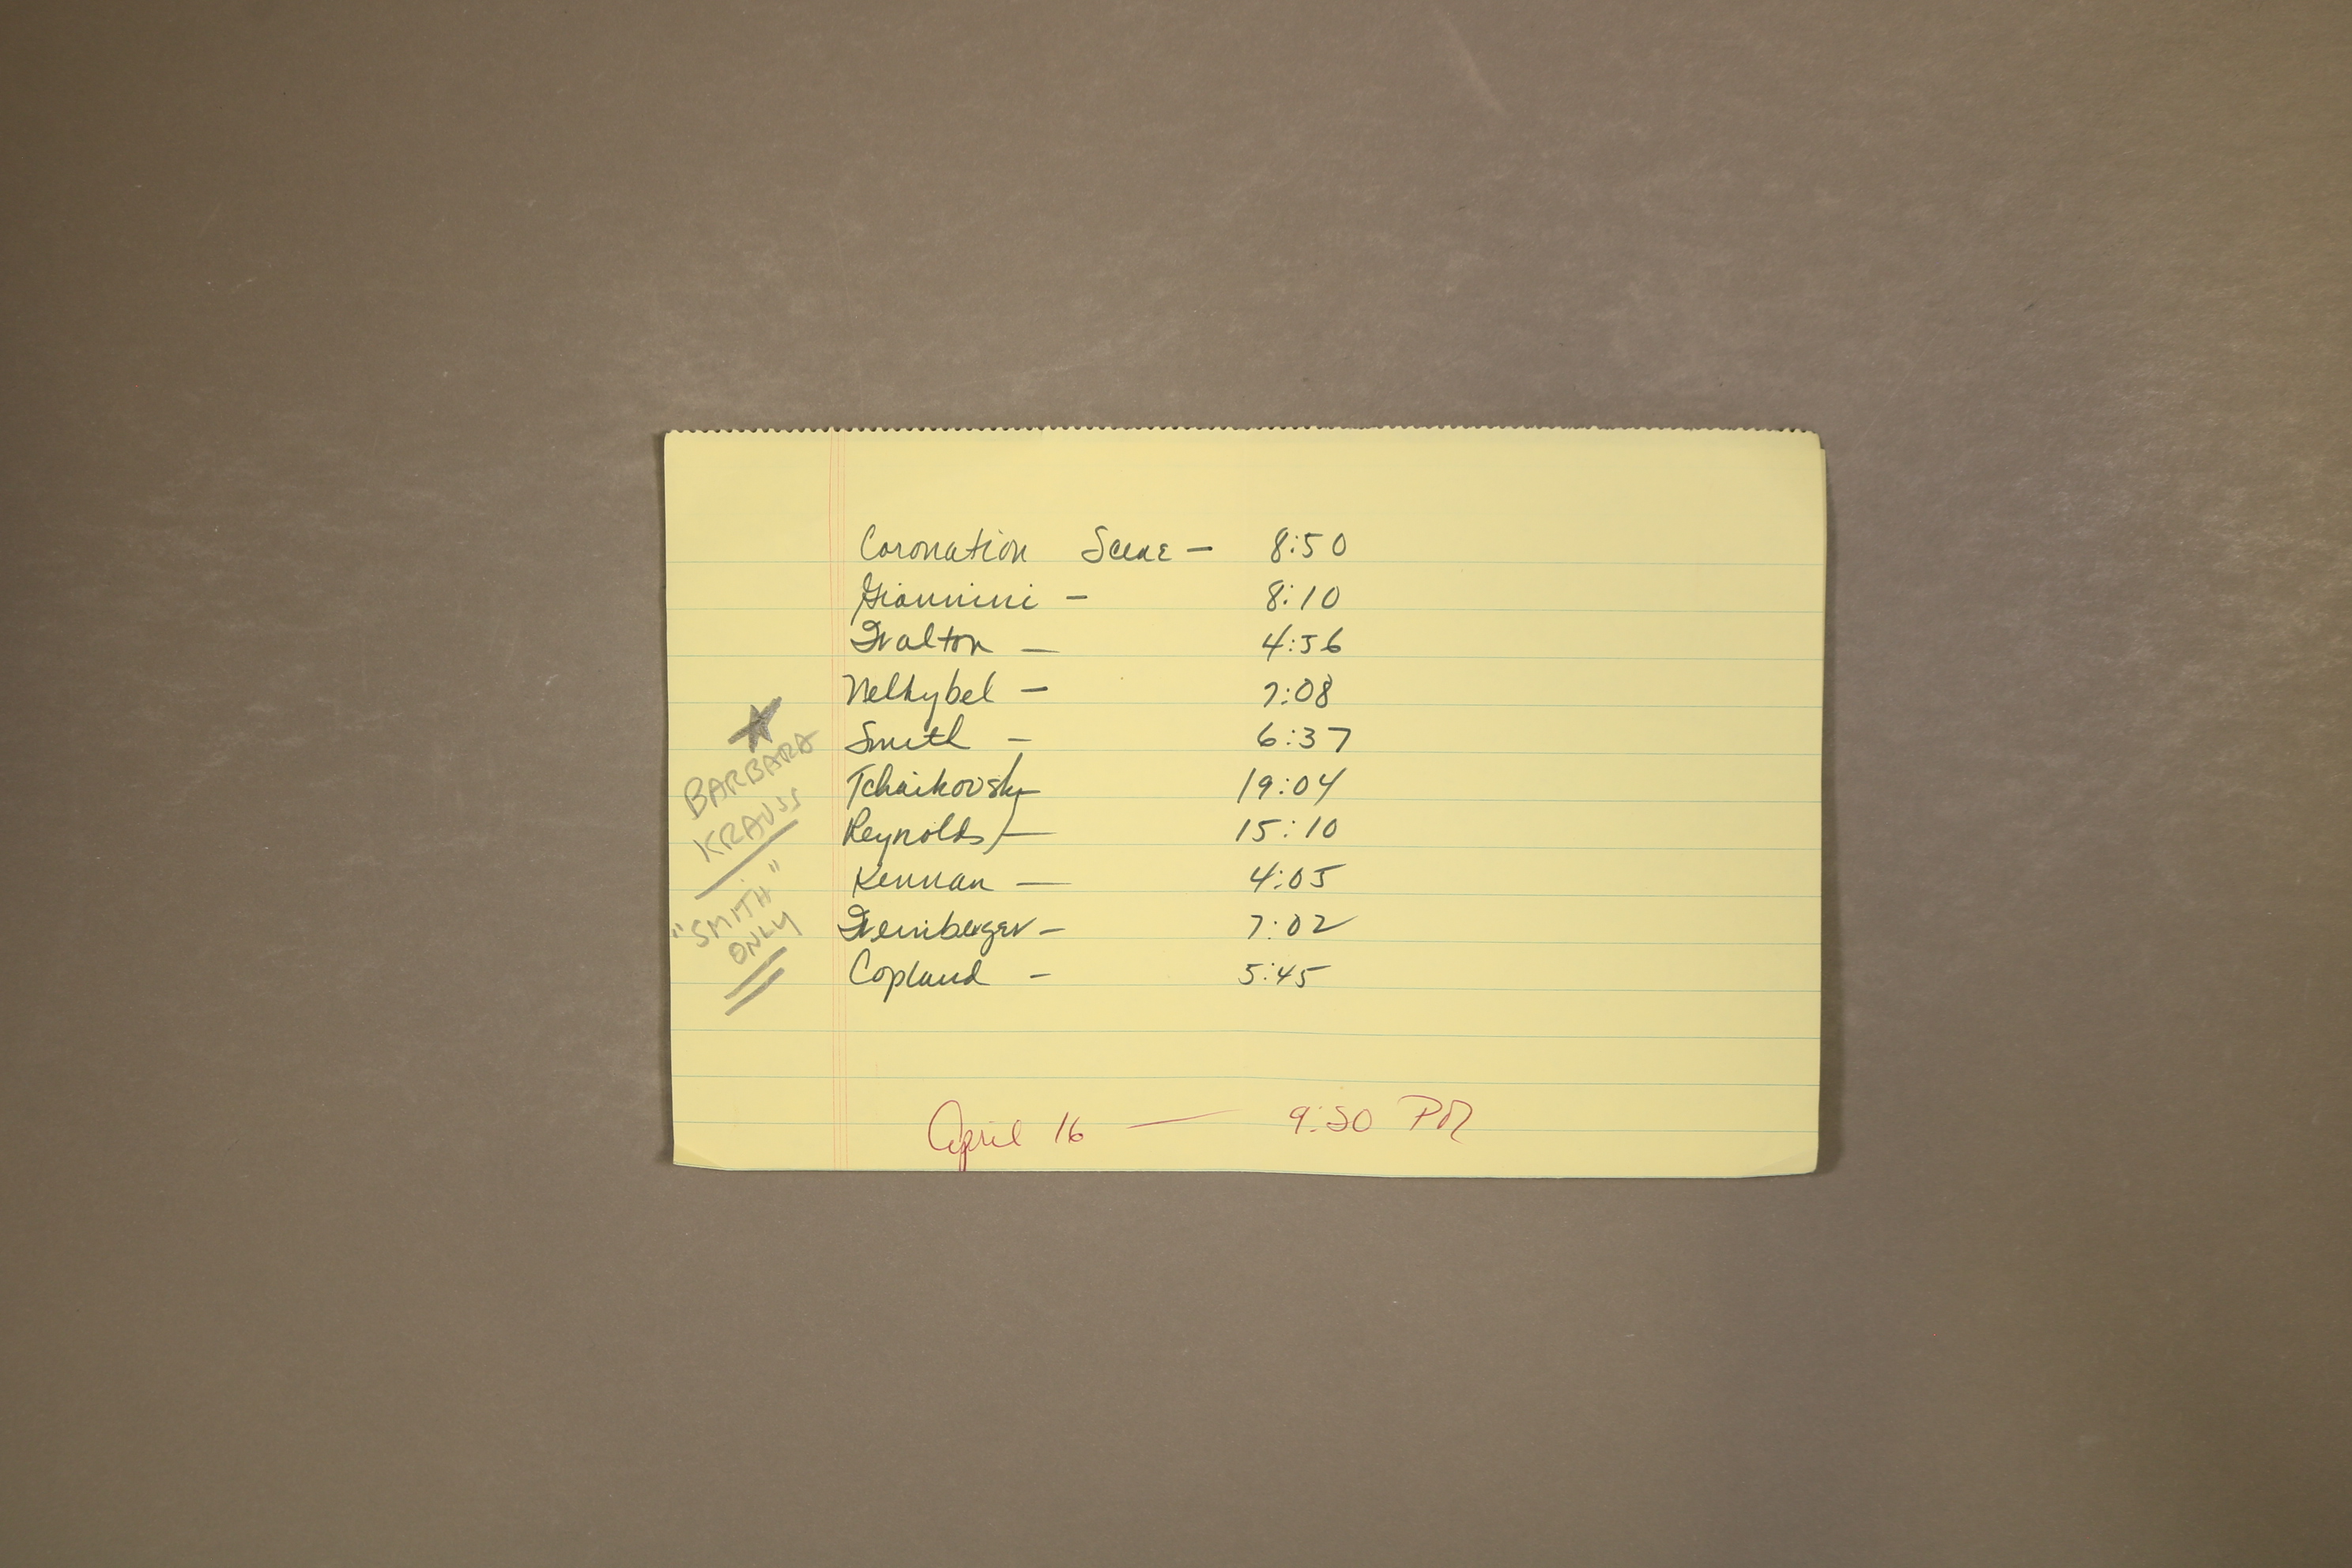 Coronation Scene — 8:50
Giannini — 8:10
Walton — 4:56
Nelhybel — 7:08
Smith — 6:37
Tchaikovsky — 19:04
Reynolds — 15:10
Kennan — 4:05
Weinberger — 7:02
Copland — 5:45
★
BARBARA
KRAUSS
"SMITH"
ONLY
April 16 — 9:30 PM